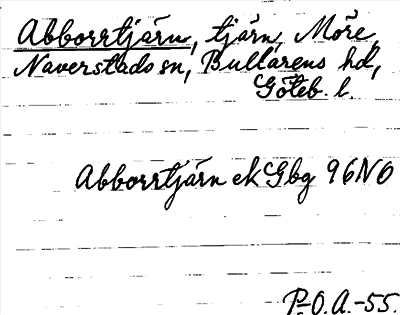 Abborrtjärn, tjärn, Möre,
Naverstads sn, Bullarens hd,
Göteb. l.
Abborrtjärn ek Gbg 96NO
P.-O.A.-55.